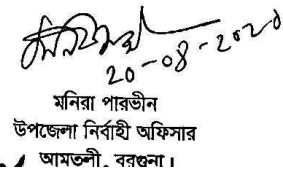 20-08-2020
মনিরা পারভীন
উপজেলা নির্বাহী অফিসার
আমতলী, বরগুনা।